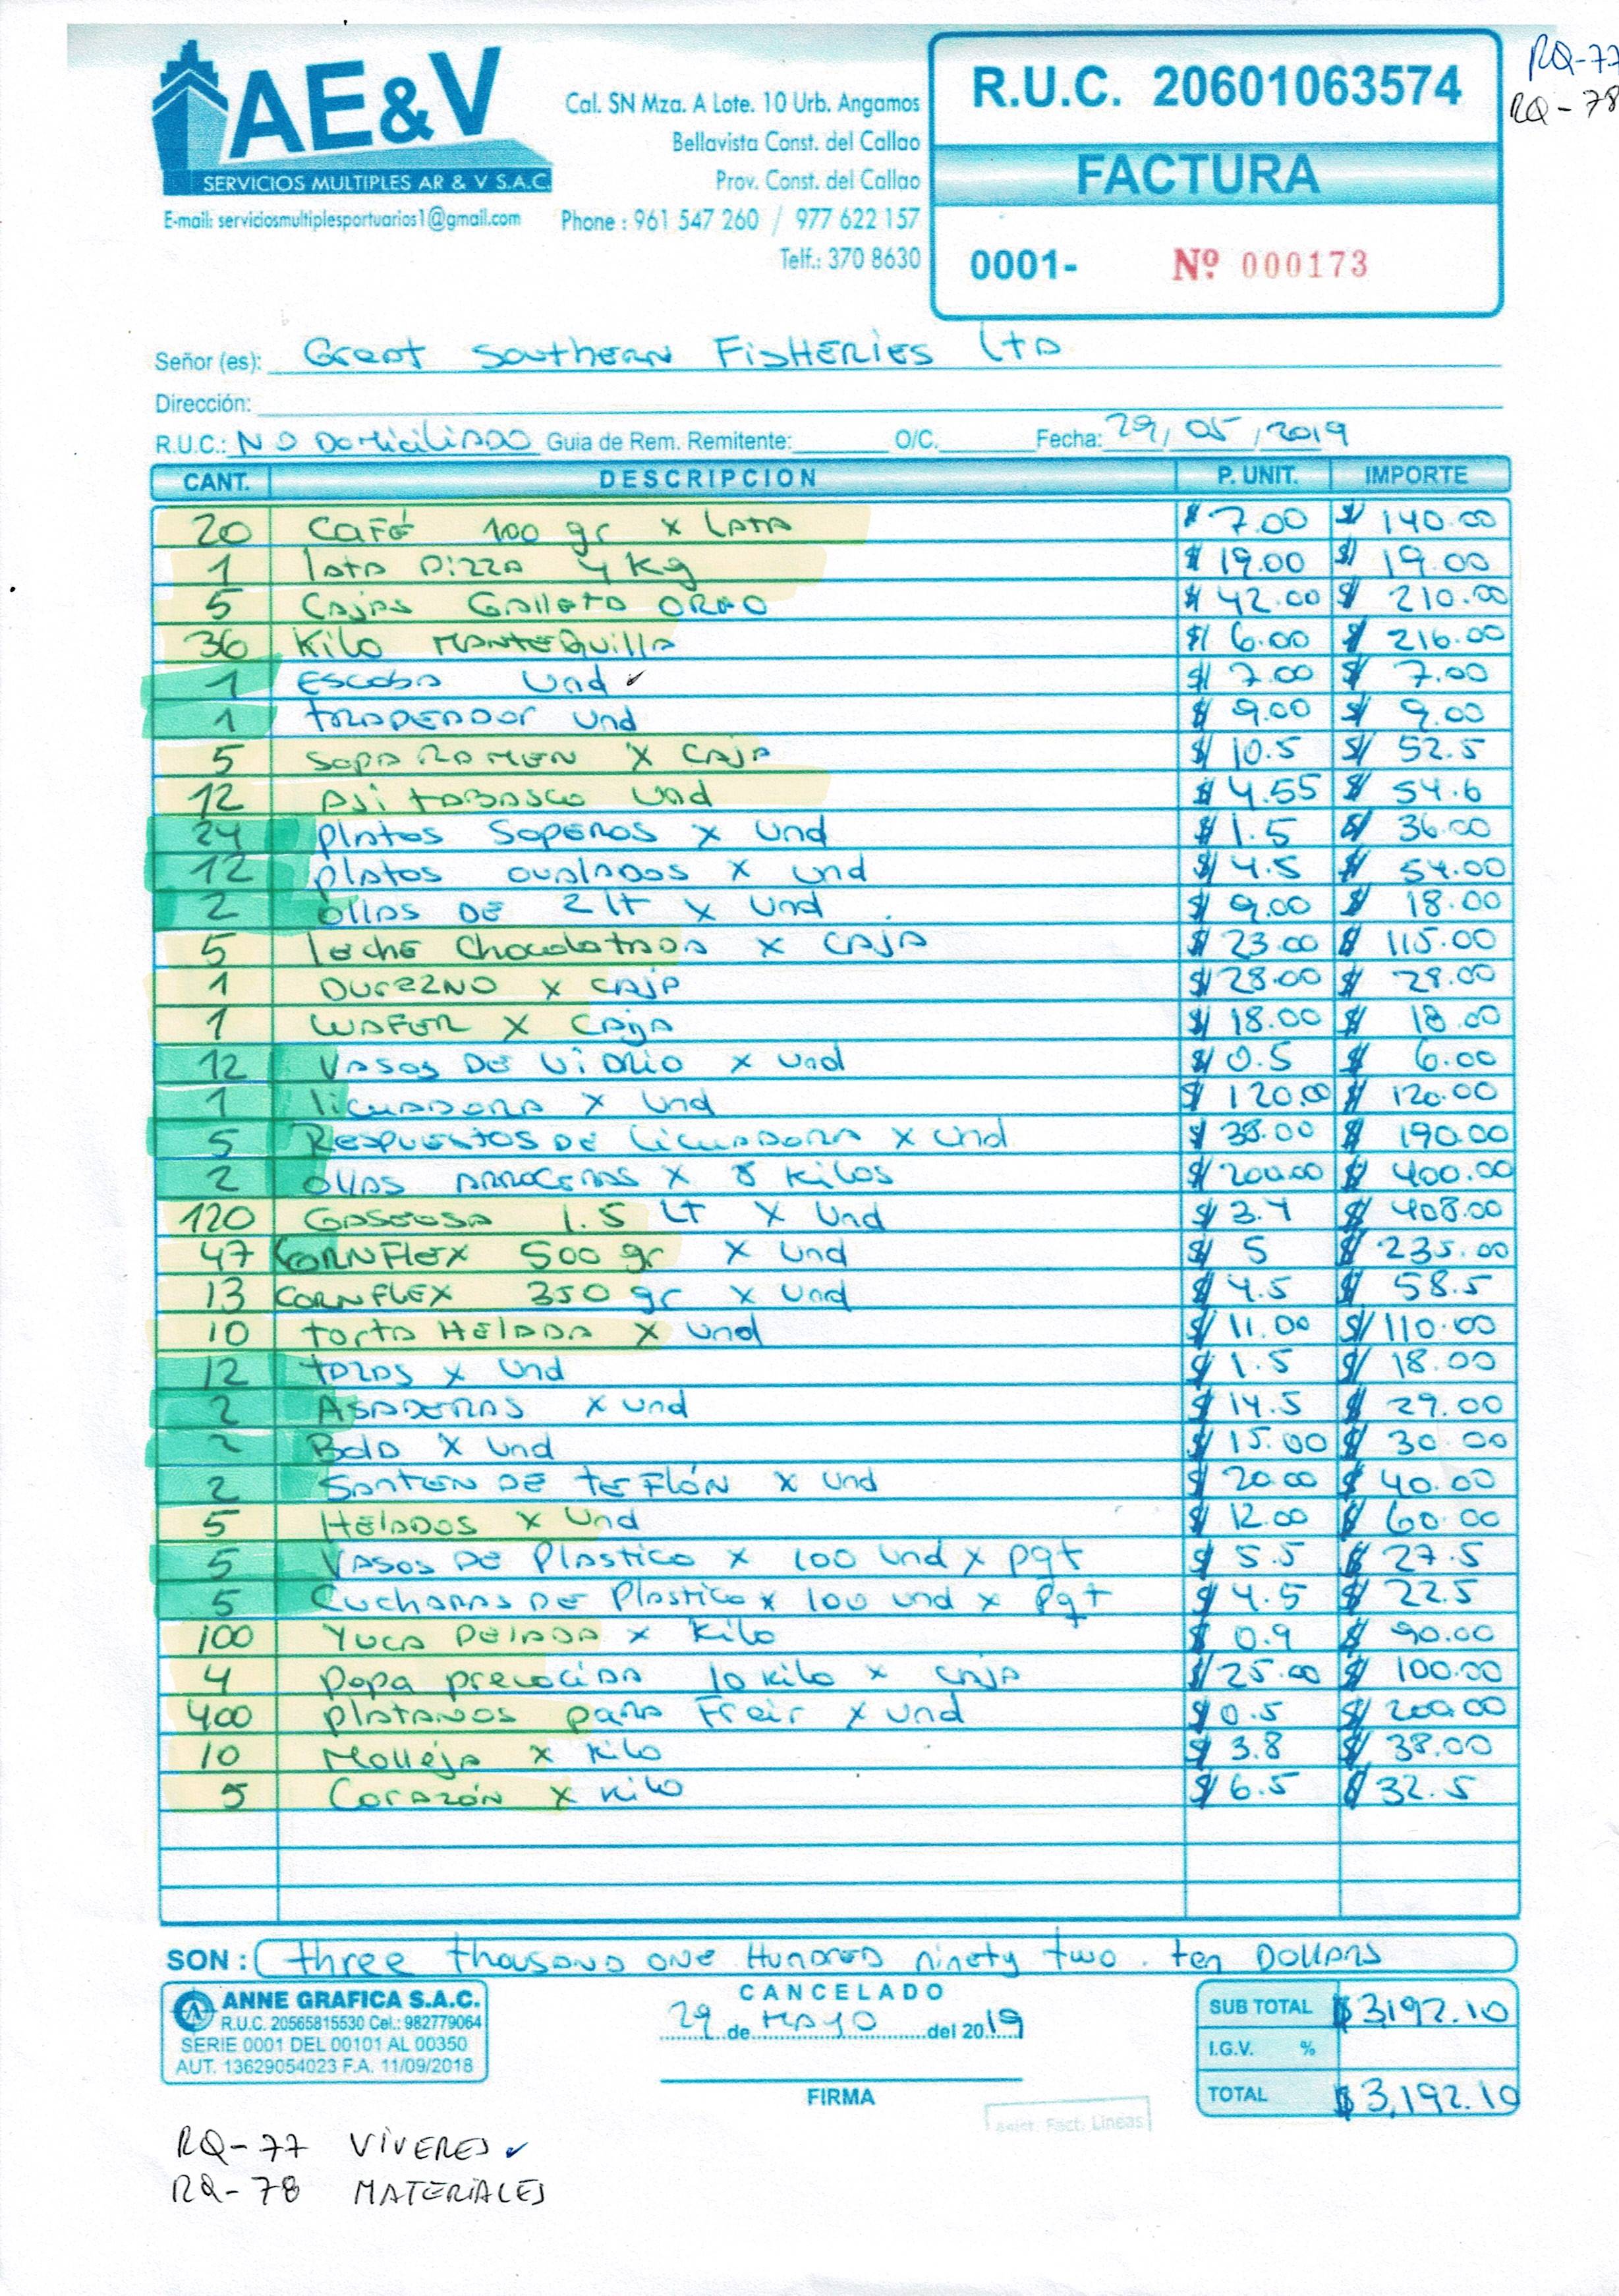 RQ-77
RQ-78
AE&V
SERVICIOS MULTIPLES AR & V S.A.C.
E-mail: serviciosmultiplesportuarios1@gmail.com
Cal. SN Mza. A Lote. 10 Urb. Angamos
Bellavista Const. del Callao
Prov. Const. del Callao
Phone : 961 547 260 / 977 622 157
Telf.: 370 8630
R.U.C. 20601063574
FACTURA
0001- Nº 000173
Señor (es): Great Southern FisHERIES LTD
Dirección:
R.U.C.: NO DOMICILIADO Guia de Rem. Remitente: O/C. Fecha: 29/05/2019
CANT. DESCRIPCION P. UNIT. IMPORTE
20 CAFÉ 100 gr x LATA $ 7.00 $ 140.00
1 lata pizza 4 kg $ 19.00 $ 19.00
5 CAJAS GALLETA OREO $ 42.00 $ 210.00
36 Kilo MANTEQuillA $ 6.00 $ 216.00
1 ESCOBA Und ✓ $ 7.00 $ 7.00
1 TRAPEADOR Und $ 9.00 $ 9.00
5 SOPA RAMEN X CAJA $ 10.5 $ 52.5
12 AJI TABASCO Und $ 4.55 $ 54.6
24 PLATOS SOPEROS x Und $ 1.5 $ 36.00
12 PLATOS OVALADOS x Und $ 4.5 $ 54.00
2 OLLAS DE 2 lt x Und $ 9.00 $ 18.00
5 leche Chocolatada x CAJA $ 23.00 $ 115.00
1 DUREZNO x CAJA $ 28.00 $ 28.00
1 WAFER X CAJA $ 18.00 $ 18.00
12 VASOS DE VIDRIO x Und $ 0.5 $ 6.00
1 licuADORA x Und $ 120.00 $ 120.00
5 RESPUESTOS DE LicuADORA x Und $ 38.00 $ 190.00
2 OLLAS ARROCERAS x 8 Kilos $ 200.00 $ 400.00
120 GASEOSA 1.5 LT X Und $ 3.4 $ 408.00
47 CORNFLEX 500 gr X Und $ 5 $ 235.00
13 CORNFLEX 350 gr x Und $ 4.5 $ 58.5
10 TORTA HELADA X Und $ 11.00 $ 110.00
12 TAZAS x Und $ 1.5 $ 18.00
2 ASADERAS x und $ 14.5 $ 29.00
2 BOLD X Und $ 15.00 $ 30.00
2 SARTEN DE TEFLÓN x Und $ 20.00 $ 40.00
5 HELADOS x Und $ 12.00 $ 60.00
5 VASOS DE Plastico x 100 Und x pqt $ 5.5 $ 27.5
5 Cucharas DE Plastico x 100 und x Pqt $ 4.5 $ 22.5
100 YUCA PELADA x Kilo $ 0.9 $ 90.00
4 papa precocida 10 Kilo x CAJA $ 25.00 $ 100.00
400 PLATANOS para Freir x und $ 0.5 $ 200.00
10 Molleja x Kilo $ 3.8 $ 38.00
5 Corazón x Kilo $ 6.5 $ 32.5
SON : three thousand ONE HUNDRED ninety two . ten DOLLARS
ANNE GRAFICA S.A.C.
R.U.C. 20565815530 Cel.: 982779064
SERIE 0001 DEL 00101 AL 00350
AUT. 13629054023 F.A. 11/09/2018
CANCELADO
29 de MAYO del 2019
FIRMA
SUB TOTAL $3,192.10
I.G.V. %
TOTAL $3,192.10
Asist. Fact. Lineas
RQ-77 VÍVERES ✓
RQ-78 MATERIALES